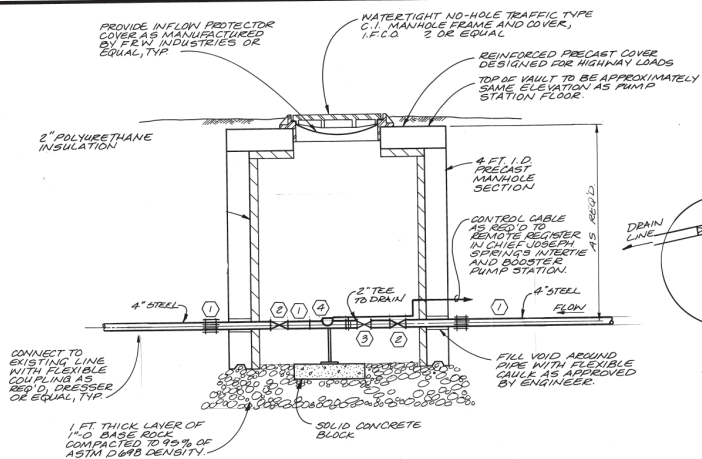 PROVIDE INFLOW PROTECTOR
COVER AS MANUFACTURED
BY FRW INDUSTRIES OR
EQUAL, TYP.
WATERTIGHT NO-HOLE TRAFFIC TYPE
C.I. MANHOLE FRAME AND COVER,
I.F.CO. 2 OR EQUAL
REINFORCED PRECAST COVER
DESIGNED FOR HIGHWAY LOADS
TOP OF VAULT TO BE APPROXIMATELY
SAME ELEVATION AS PUMP
STATION FLOOR.
2" POLYURETHANE
INSULATION
4 FT. I.D.
PRECAST
MANHOLE
SECTION
AS REQ'D.
CONTROL CABLE
AS REQ'D TO
REMOTE REGISTER
IN CHIEF JOSEPH
SPRINGS INTERTIE
AND BOOSTER
PUMP STATION.
DRAIN
LINE
2" TEE
TO DRAIN
4" STEEL
1
2
1
4
3
2
1
4" STEEL
FLOW
CONNECT TO
EXISTING LINE
WITH FLEXIBLE
COUPLING AS
REQ'D, DRESSER
OR EQUAL, TYP.
FILL VOID AROUND
PIPE WITH FLEXIBLE
CAULK AS APPROVED
BY ENGINEER.
1 FT. THICK LAYER OF
1"-O BASE ROCK
COMPACTED TO 95% OF
ASTM D698 DENSITY.
SOLID CONCRETE
BLOCK